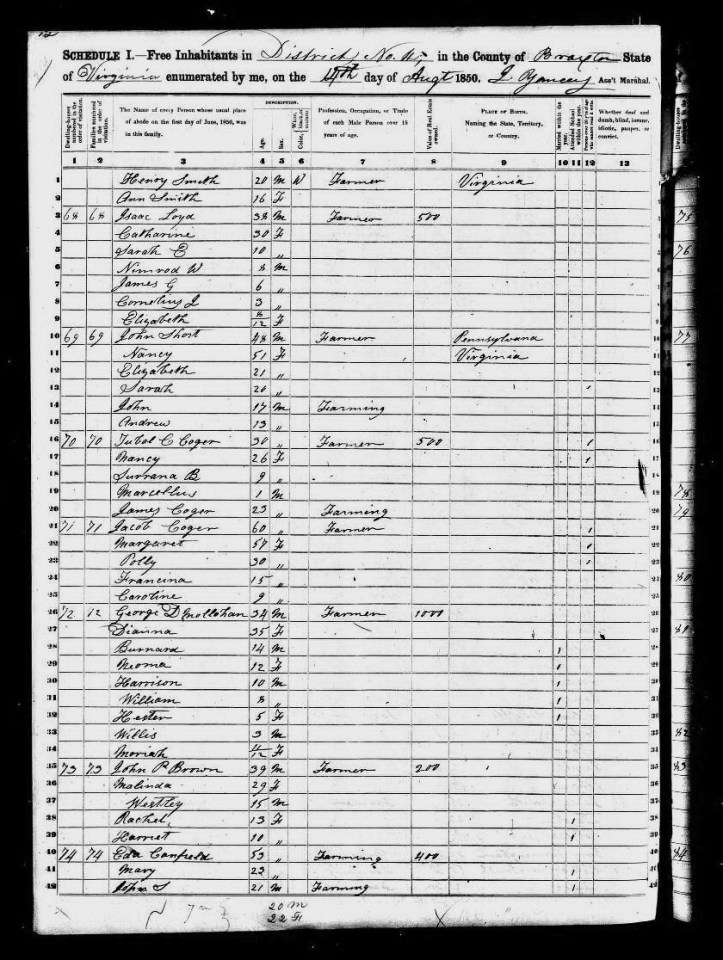 SCHEDULE I.—Free Inhabitants in District No. in the County of Braxton State
of Virginia enumerated by me, on the day of Augt 1850. Yancey Ass't Marshal.
Dwelling-houses numbered in the order of visitation.
Families numbered in the order of visitation.
The Name of every Person whose usual place of abode on the first day of June, 1850, was in this family.
DESCRIPTION.
Age.
Sex.
Color,
Profession, Occupation, or Trade of each Male Person over 15 years of age.
Value of Real Estate owned.
PLACE OF BIRTH. Naming the State, Territory, or Country.
Married within the year.
Attended School within the year.
Whether deaf and dumb, blind, insane, idiotic, pauper, or convict.
1 2 3 4 5 6 7 8 9 10 11 12 13
1 Henry Smith 20 M W Farmer Virginia
2 Ann Smith 16 F
3 68 68 Isaac Loyd 38 M Farmer 500
4 Catharine 30 F
5 Sarah E 10 "
6 Nimrod W 8 M
7 James G 6 "
8 Cornelius J 3 "
9 Elizabeth 8/12 F
10 69 69 John Short 48 M Farmer Pennsylvana
11 Nancy 51 F Virginia
12 Elizabeth 21 "
13 Sarah 20 " 1
14 John 17 M Farming
15 Andrew 13 "
16 70 70 Tubol C Coger 30 " Farmer 500 1
17 Nancy 26 F 1
18 Surrana B 9 "
19 Marcellus 1 M
20 James Coger 23 " Farming
21 71 71 Jacob Coger 60 " Farmer 1
22 Margaret 57 F 1
23 Polly 30 " 1
24 Francina 15 "
25 Caroline 9 "
26 72 72 George D Mollohan 34 M Farmer 1000
27 Dianna 35 F
28 Burnard 14 M 1
29 Neoma 12 F 1
30 Harrison 10 M 1
31 William 8 " 1
32 Hester 5 F 1
33 Willis 3 M
34 Moriah 4/12 F
35 73 73 John P Brown 39 M Farmer 200
36 Malinda 29 F
37 Westley 15 M
38 Rachel 13 F 1
39 Harriet 10 " 1
40 74 74 Eda Canfield 53 " Farming 400
41 Mary 23 " 1
42 John S 21 M Farming
20 M
22 F
75
76
77
78
79
80
81
82
83
84